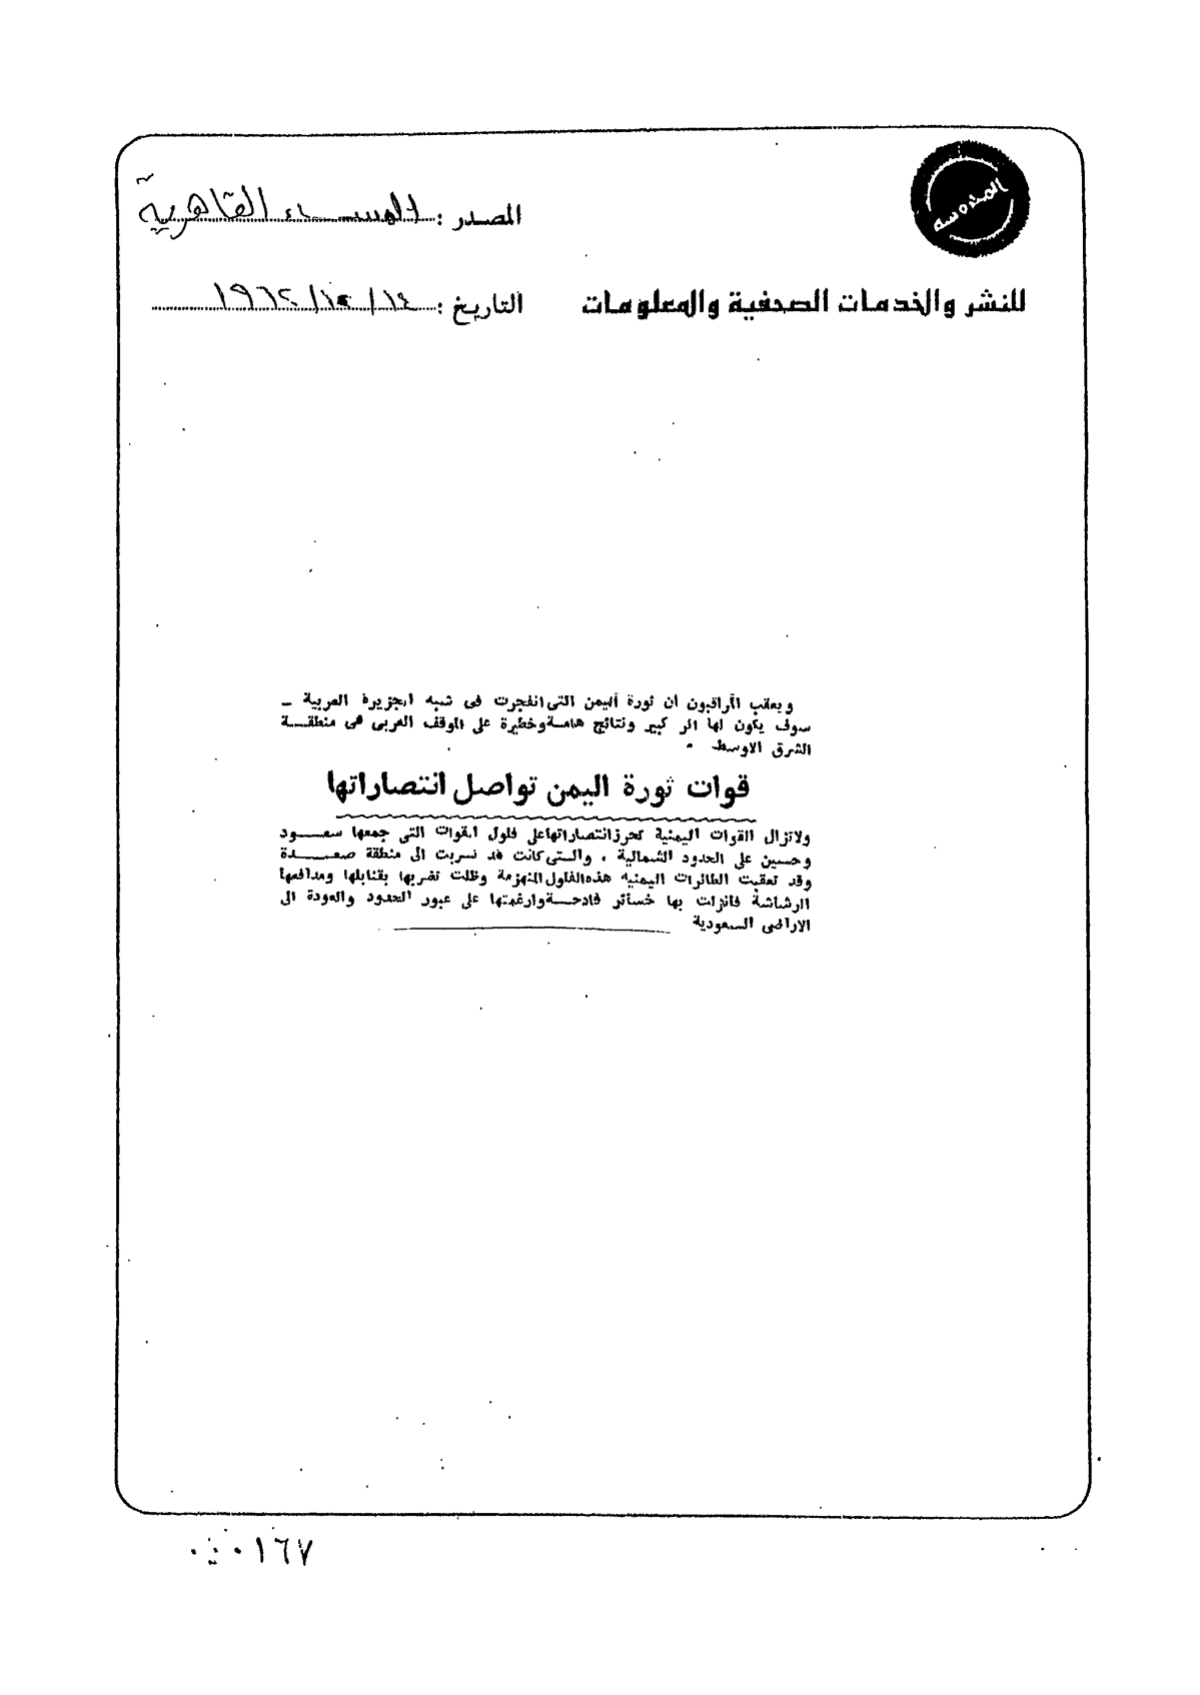 المصدر : المساء القاهرية
للنشر والخدمات الصحفية والمعلومات
التاريخ : ١٤/ /١٩٦٢
ويعقب المراقبون ان ثورة اليمن التى انفجرت فى شبه الجزيرة العربية ـ
سوف يكون لها اثر كبير ونتائج هامة وخطيرة على الموقف العربى فى منطقة
الشرق الاوسط .
قوات ثورة اليمن تواصل انتصاراتها
ولاتزال القوات اليمنية تحرز انتصاراتها على فلول القوات التى جمعها سعود
وحسين على الحدود الشمالية ، والتى كانت قد تسربت الى منطقة صعدة
وقد تعقبت الطائرات اليمنية هذه الفلول المنهزمة وظلت تضربها بقنابلها ومدافعها
الرشاشة فانزلت بها خسائر فادحة وارغمتها على عبور الحدود والعودة الى
الاراضى السعودية
١٦٧